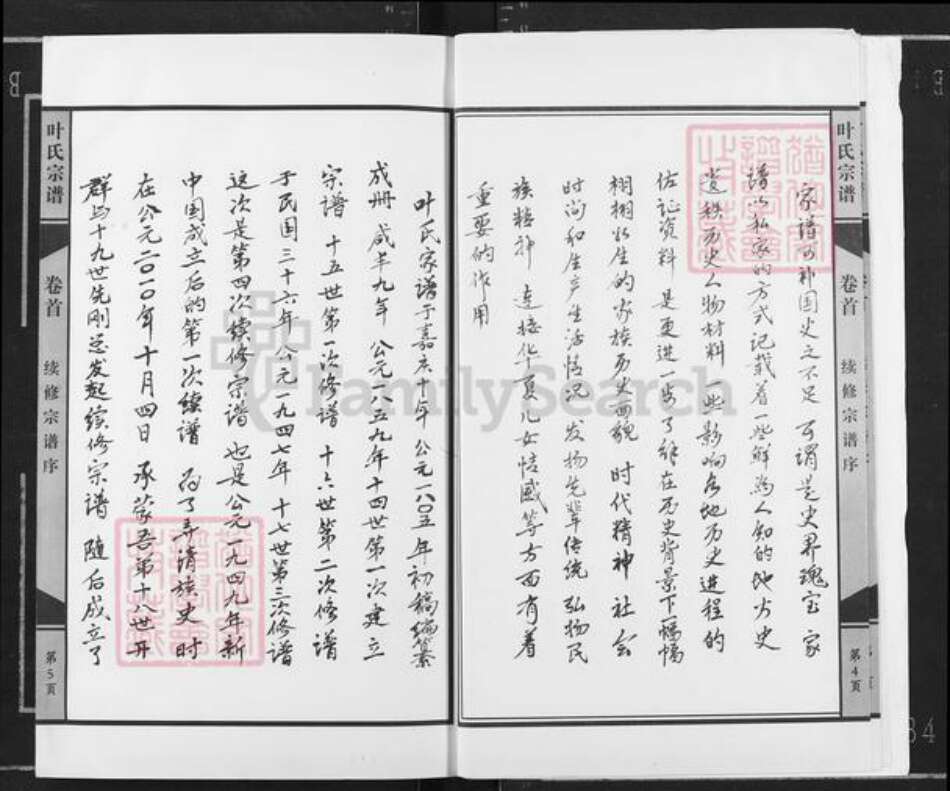 叶氏宗谱
卷首
续修宗谱序
第4页
家谱可补国史之不足 可谓是史界魂宝 家
谱以私家的方式记载着一些鲜为人知的地方史
遗轶历史人物材料 一些影响各地历史进程的
佐证资料 是更进一步了解在历史背景下一幅幅
栩栩如生的家族历史面貌 时代精神 社会
时尚和生产生活情况 发扬先辈传统 弘扬民
族精神 连接华夏儿女情感等方面有着
重要的作用
叶氏家谱于嘉庆十年 公元一八0五年初稿编纂
成册 咸丰九年 公元一八五九年十四世第一次建立
宗谱 十五世第一次修谱 十六世第二次修谱
于民国三十六年 公元一九四七年 十七世第三次修谱
这次是第四次续修宗谱 也是公元一九四九年新
中国成立后的第一次续谱 为了弄清族史 时
在公元二0一0年十月四日 承蒙吾弟十八世开
群与十九世先刚总发起续修宗谱 随后成立了
叶氏宗谱
卷首
续修宗谱序
第5页
FamilySearch